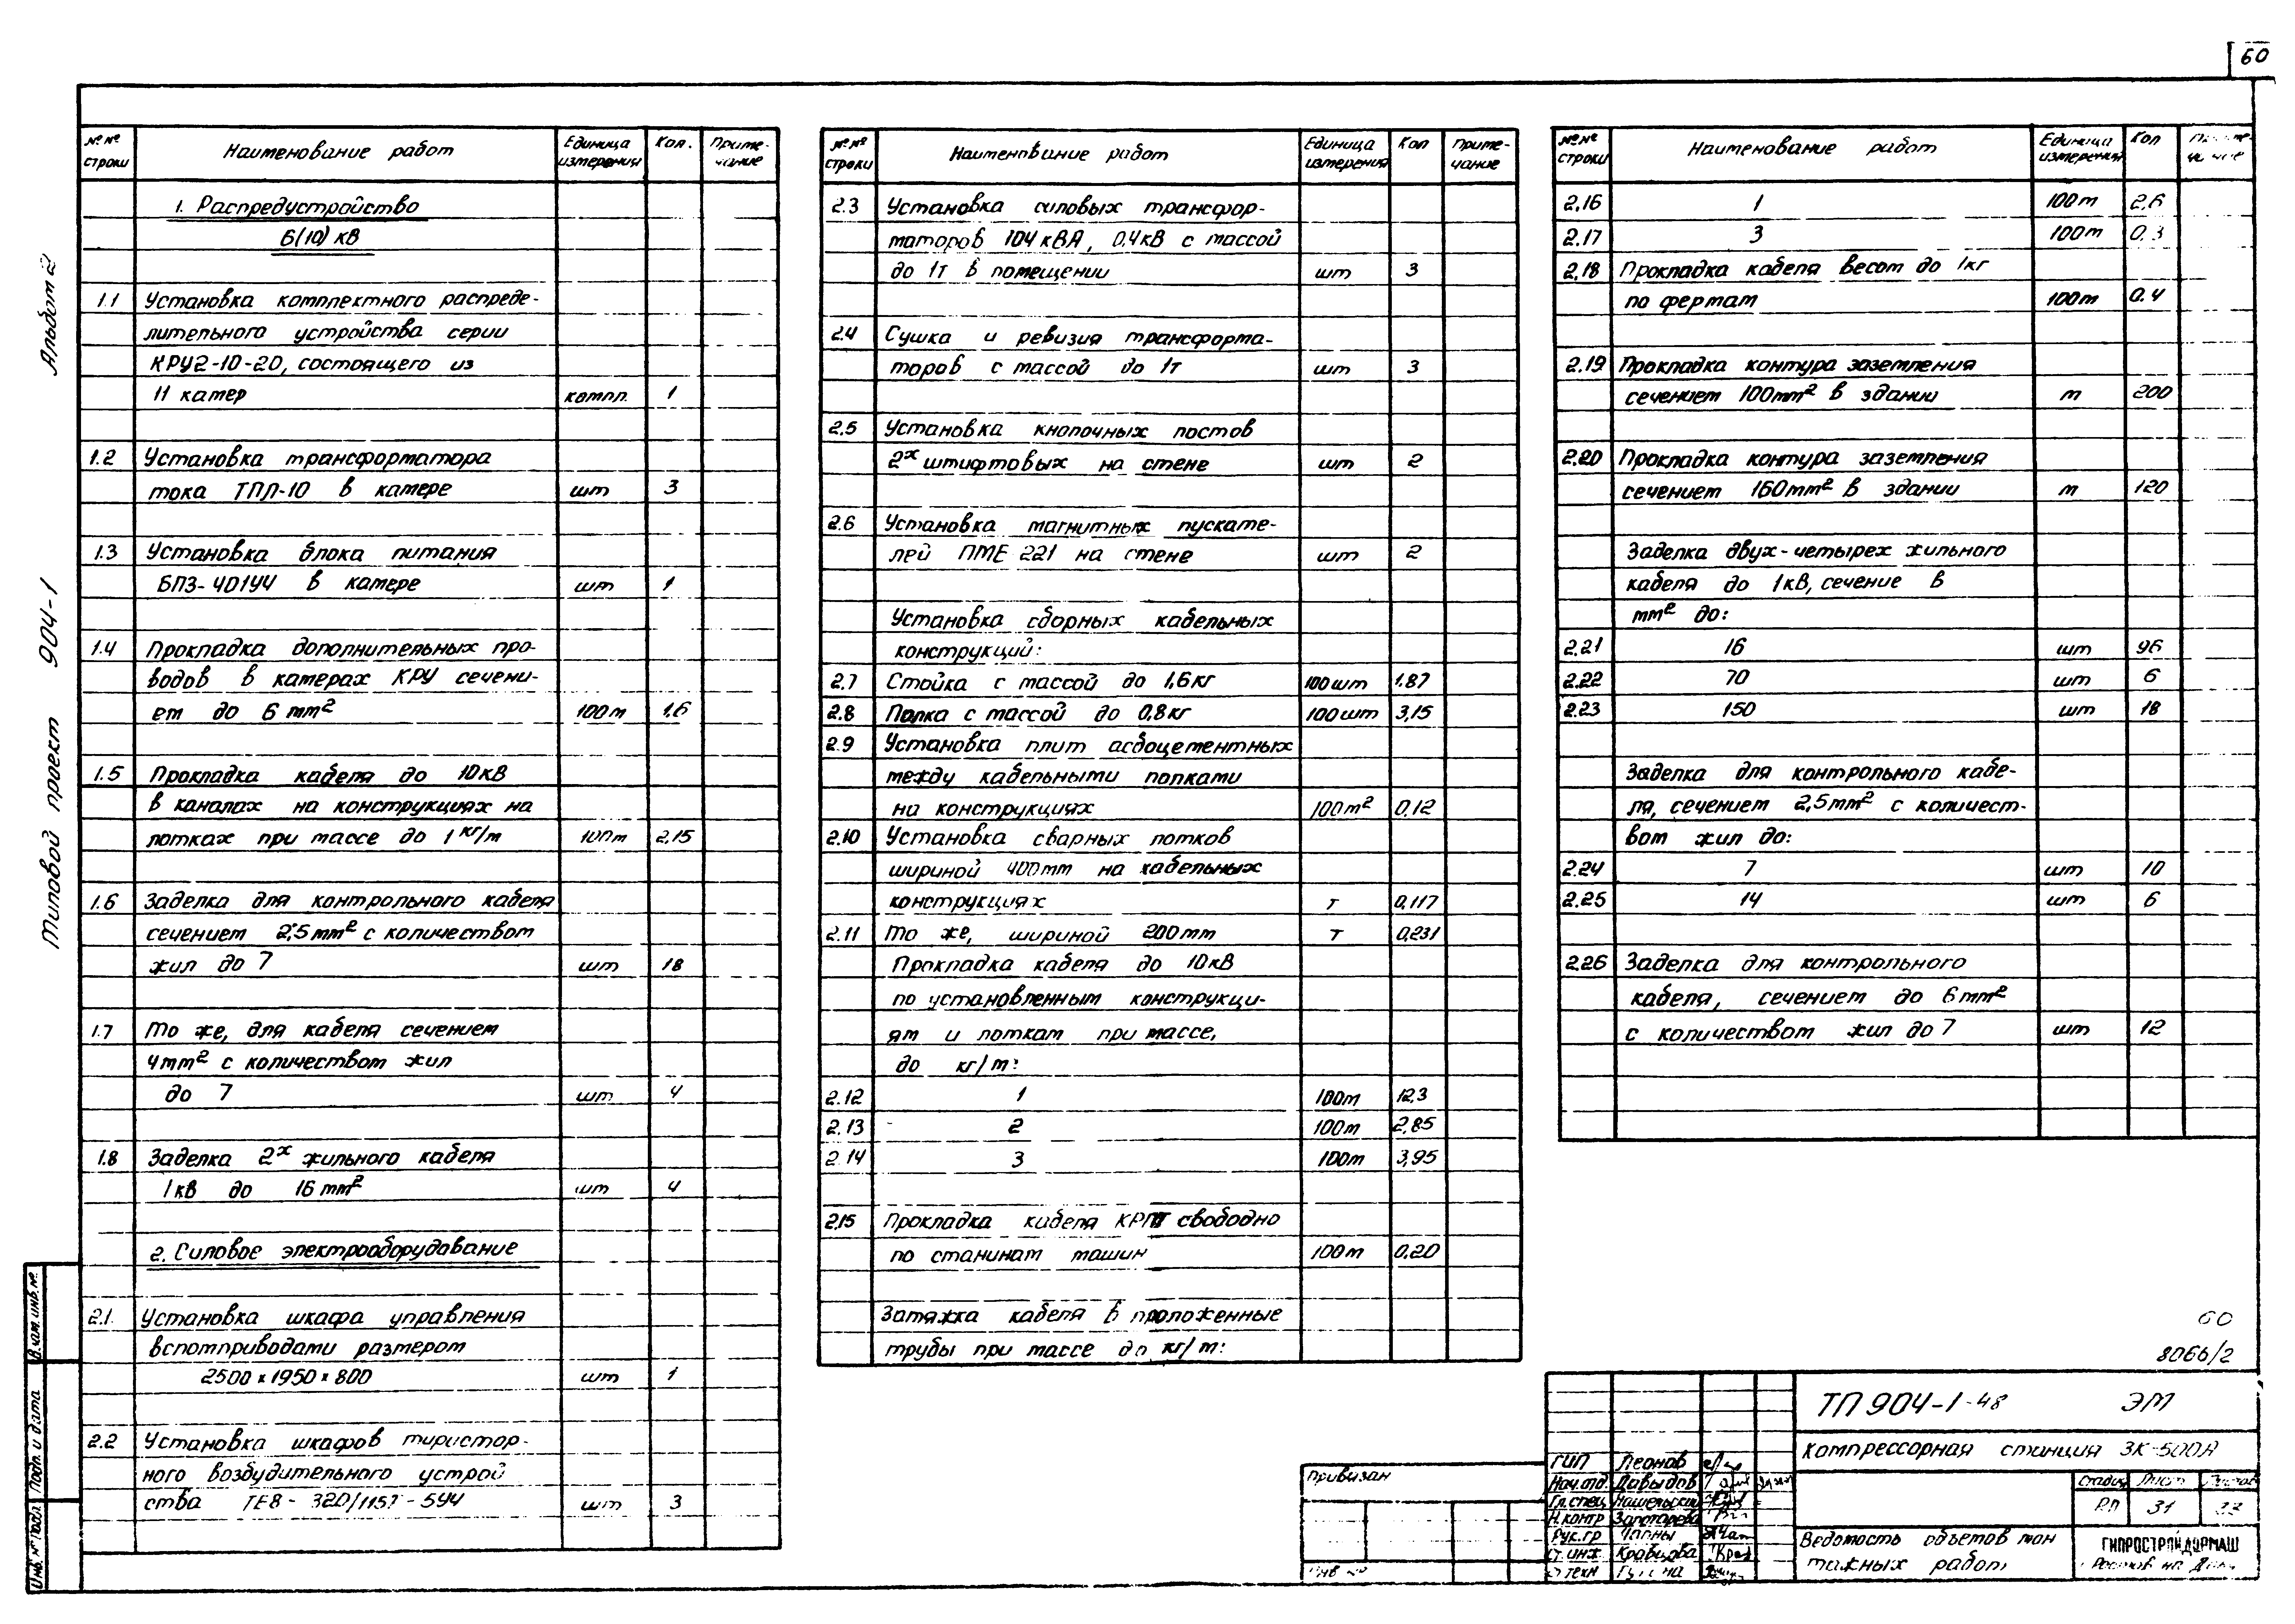 60
Альбом 2
Типовой проект 904-1
№№ строки
Наименование работ
Единица измерения
Кол.
Приме-
чание
1. Распредустройство
6(10) кВ
1.1 Установка комплектного распреде-
лительного устройства серии
КРУ2-10-20, состоящего из
11 камер компл. 1
1.2 Установка трансформатора
тока ТПЛ-10 в камере шт 3
1.3 Установка блока питания
БПЗ-401У4 в камере шт 1
1.4 Прокладка дополнительных про-
водов в камерах КРУ сечени-
ем до 6 мм² 100м 1,6
1.5 Прокладка кабеля до 10кВ
в каналах на конструкциях на
лотках при массе до 1 кг/м 100м 2,15
1.6 Заделка для контрольного кабеля
сечением 2,5мм² с количеством
жил до 7 шт 18
1.7 То же, для кабеля сечением
4мм² с количеством жил
до 7 шт 4
1.8 Заделка 2х жильного кабеля
1кв до 16 мм² шт 4
2. Силовое электрооборудование
2.1. Установка шкафа управления
вспомприводами размером
2500 х 1950 х 800 шт 1
2.2 Установка шкафов тиристор-
ного возбудительного устрой
ства ТЕ8-320/115Т-5У4 шт 3
№№ строки
Наименование работ
Единица измерения
Кол
Приме-
чание
2.3 Установка силовых трансфор-
маторов 104кВА, 0.4кВ с массой
до 1т в помещении шт 3
2.4 Сушка и ревизия трансформа-
торов с массой до 1т шт 3
2.5 Установка кнопочных постов
2х штифтовых на стене шт 2
2.6 Установка магнитных пускате-
лей ПМЕ 221 на стене шт 2
Установка сборных кабельных
конструкций:
2.7 Стойка с массой до 1,6кг 100шт 1.87
2.8 Полка с массой до 0,8кг 100шт 3,15
2.9 Установка плит асбоцементных
между кабельными полками
на конструкциях 100м² 0,12
2.10 Установка сварных лотков
шириной 400мм на кабельных
конструкциях т 0,117
2.11 То же, шириной 200мм т 0,231
Прокладка кабеля до 10кВ
по установленным конструкци-
ям и лоткам при массе,
до кг/м:
2.12 1 100м 12,3
2.13 2 100м 2,85
2.14 3 100м 3,95
2.15 Прокладка кабеля КРПТ свободно
по станинам машин 100м 0,20
Затяжка кабеля в проложенные
трубы при массе до кг/м:
№№ строки
Наименование работ
Единица измерения
Кол
2.16 1 100м 2,6
2.17 3 100м 0.3
2.18 Прокладка кабеля весом до 1кг
по фермам 100м 0.4
2.19 Прокладка контура заземления
сечением 100мм² в здании м 200
2.20 Прокладка контура заземления
сечением 160мм² в здании м 120
Заделка двух-четырех жильного
кабеля до 1кВ, сечение в
мм² до:
2.21 16 шт 96
2.22 70 шт 6
2.23 150 шт 18
Заделка для контрольного кабе-
ля, сечением 2,5мм² с количест-
вом жил до:
2.24 7 шт 10
2.25 14 шт 6
2.26 Заделка для контрольного
кабеля, сечением до 6мм²
с количеством жил до 7 шт 12
60
8066/2
ТП 904-1-48 ЭМ
Компрессорная станция 3К-500А
Стадия Лист Листов
РП 31
Ведомость объемов мон
тажных работ
ГИПРОСТРОЙДОРМАШ
Ростов на Дону
ГИП Леонов
Нач.отд. Давыдов
Гл.спец
Н.контр Золотарева
Рук.гр
Ст.инж Кравцова
Ст техн
Привязан
Инв №
Взам. инв. №
Подп. и дата
Инв. № подл.